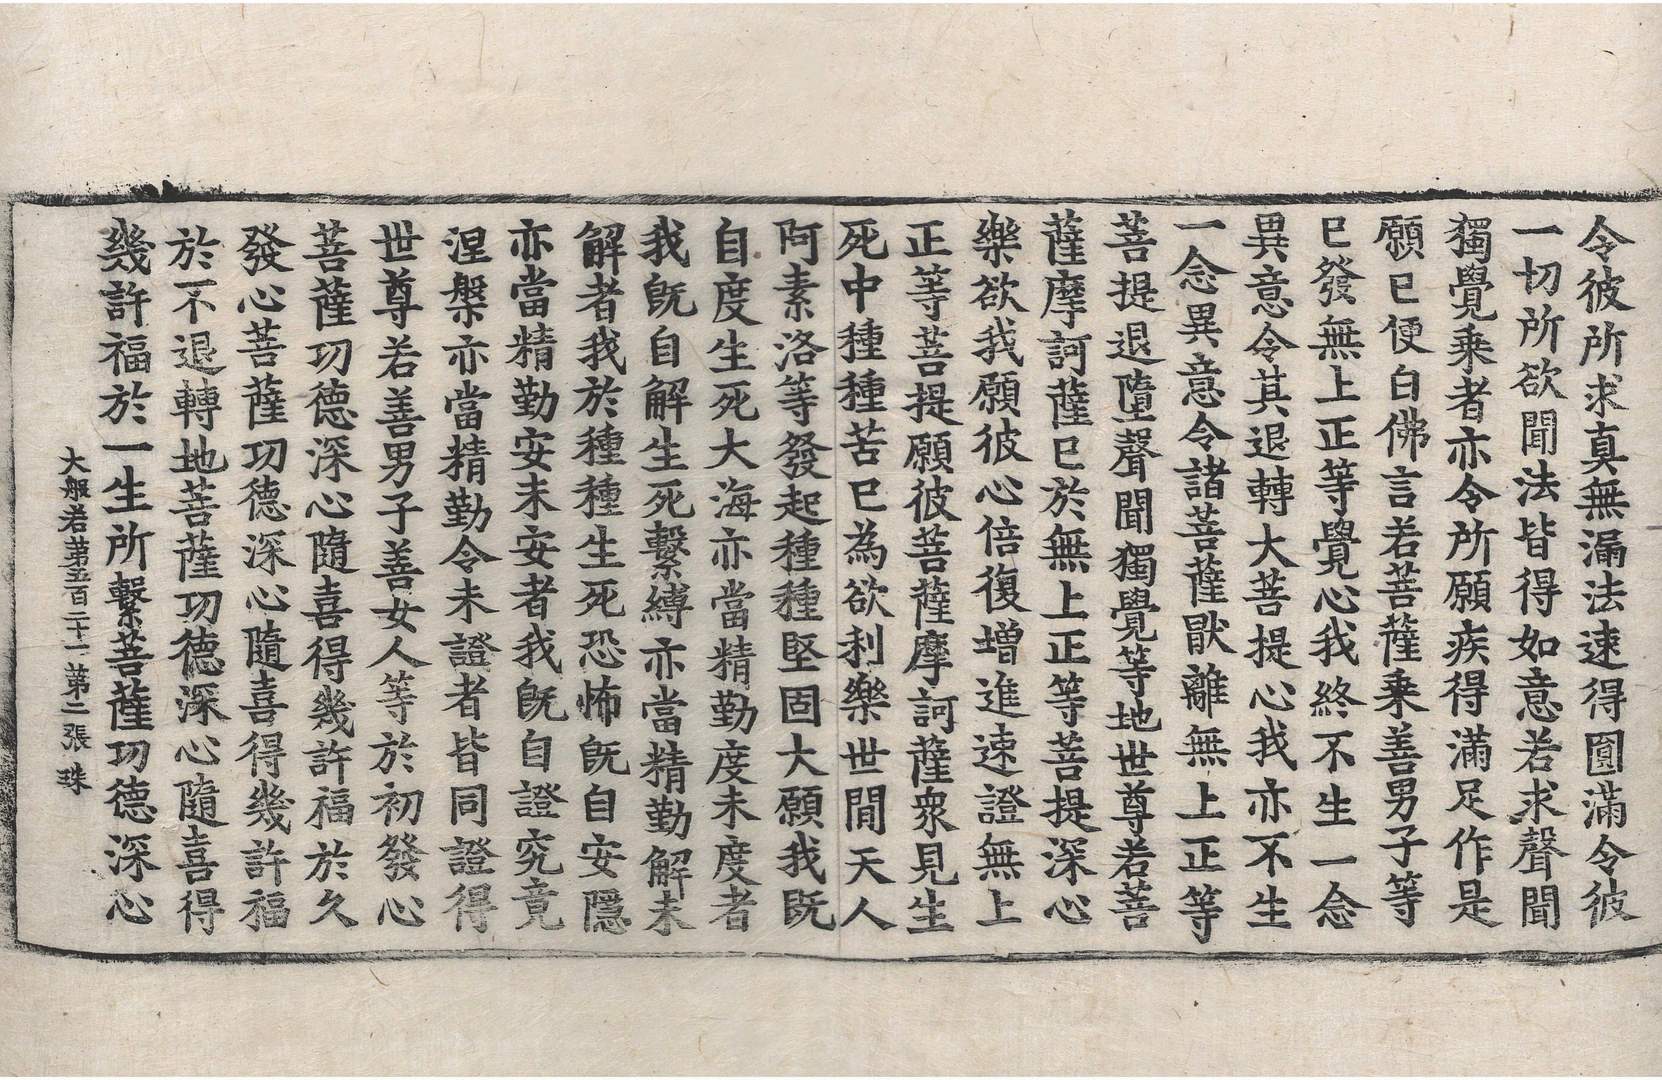 令彼所求真無漏法速得圓滿令彼
一切所欲聞法皆得如意若求聲聞
獨覺乘者亦令所願疾得滿足作是
願已便白佛言若菩薩乘善男子等
已發無上正等覺心我終不生一念
異意令其退轉大菩提心我亦不生
一念異意令諸菩薩猒離無上正等
菩提退墮聲聞獨覺等地世尊若菩
薩摩訶薩已於無上正等菩提深心
樂欲我願彼心倍復增進速證無上
正等菩提願彼菩薩摩訶薩衆見生
死中種種苦已為欲利樂世間天人
阿素洛等發起種種堅固大願我既
自度生死大海亦當精勤度未度者
我既自解生死繫縛亦當精勤解未
解者我於種種生死恐怖既自安隱
亦當精勤安未安者我既自證究竟
涅槃亦當精勤令未證者皆同證得
世尊若善男子善女人等於初發心
菩薩功德深心隨喜得幾許福於久
發心菩薩功德深心隨喜得幾許福
於不退轉地菩薩功德深心隨喜得
幾許福於一生所繫菩薩功德深心
大般若第五百二十一 第二張 珠